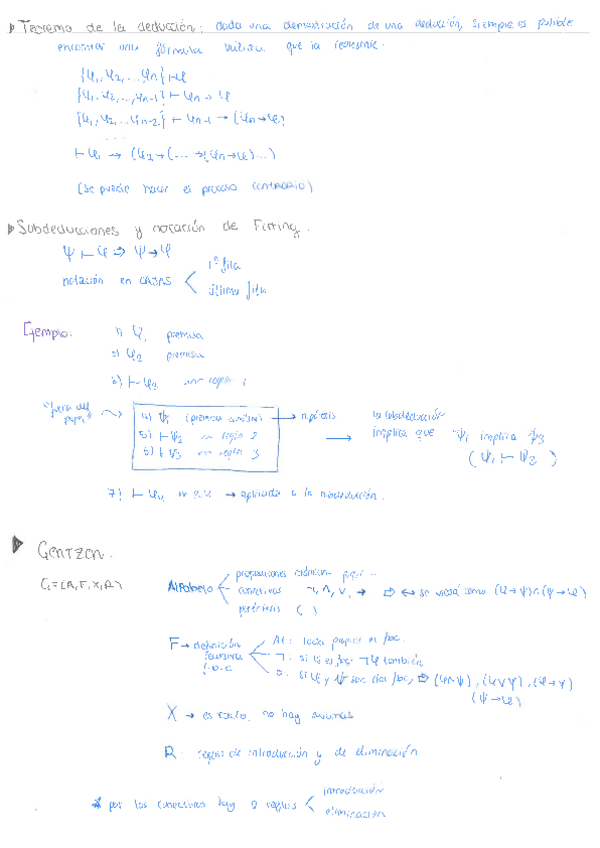 Teorema de la deducción: dada una demostración de una deducción, siempre es posible
encontrar una fórmula válida que la represente.
{φ1, φ2, ..., φn} ⊢ φ
{φ1, φ2, ..., φn-1} ⊢ φn → φ
{φ1, φ2, ..., φn-2} ⊢ φn-1 → (φn → φ)
...
⊢ φ1 → (φ2 → (... → (φn → φ)...)
(se puede hacer el proceso contrario)
Subdeducciones y notación de Fitting.
ψ ⊢ φ ⇒ ψ → φ
notación en CAJAS
1ª fila
última fila
Ejemplo:
1) φ1 premisa
2) φ2 premisa
3) ⊢ φ3 regla 1
4) ψ1 (premisa) → hipótesis
5) ⊢ ψ2 regla 2
6) ⊢ ψ3 regla 3
→ la subdeducción
implica que ψ1 implica ψ3
(ψ1 ⊢ ψ3)
7) ⊢ φ4 → aplicada a la subdeducción.
Gentzen.
Alfabeto
proposiciones
conectivos ¬, ∧, ∨, → ⇒ ↔ se usará como (φ→ψ)∧(ψ→φ)
paréntesis ( )
F → definición
At: toda es fbc.
¬: si φ es fbc ¬φ también
o: si φ y ψ son fbc, ⇒ (φ∧ψ), (φ∨ψ), (φ→ψ)
(ψ→φ)
X → es vacío, no hay axiomas
R reglas de introducción y de eliminación
* por los conectivos hay 2 reglas
introducción
eliminación